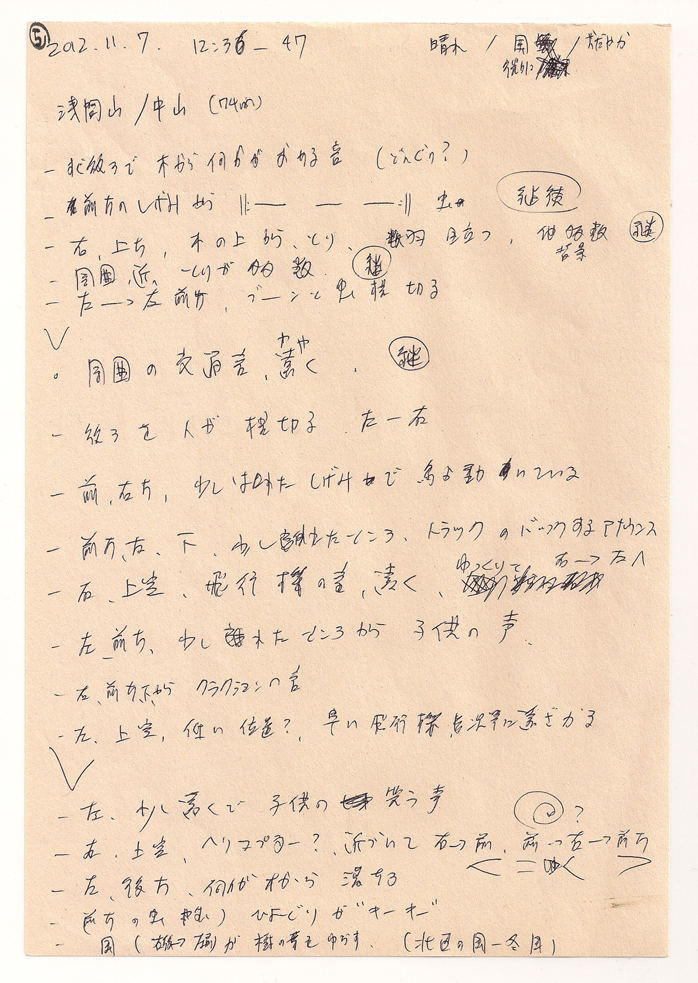 ⑤ 2012.11.7. 12:36 - 47 晴れ / 風 / おだやか
後ろに
浅間山 / 中山 (74m)
- 後ろで 木から何かがおちる音 (どんぐり?)
- 前方のしげみから ‖: — — — :‖ 虫 継続
- 右、上方、木の上から、とり、数羽 目立つ、他 多数 継
背景
- 周囲、近、とりが多数 継
- 左→左前方、ブーンと虫 横切る
・ 周囲の交通音、遠く、 継
やや
- 後ろを人が横切る 左→右
- 前、右方、少しはなれたしげみで鳥が動いている
- 前方、左、下、少し離れたところ、トラックのバックするアナウンス
- 右、上空、飛行機の音、遠く、ゆっくりと 右→左へ
- 左前方、少し離れたところから 子供の声、
- 右、前方、下から クラクションの音
- 左、上空、低い位置?、早い飛行機、次第に遠ざかる
- 左、少し遠くで 子供の 笑う声 ?
- 右、上空、ヘリコプター?、近づいて 右→前、前→左→前方
< = ゆく >
- 左、後方、何かが木から 落ちる
- 前方の虫 ) ひよどりが"キーキー"
- 風 ( ) が 樹の葉をゆらす. (北西の風-冬風)